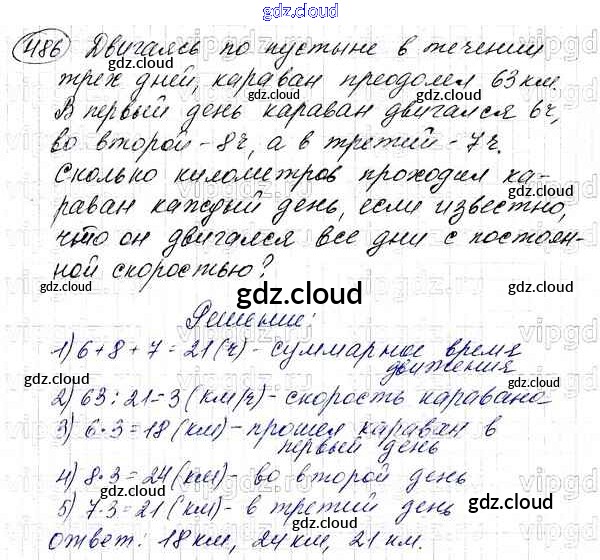 gdz.cloud
486 Двигаясь по пустыне в течении
gdz.cloud
трех дней, караван преодолел 63 км.
В первый день караван двигался 6ч,
во второй - 8ч, а в третий - 7ч.
gdz.cloud gdz.cloud
Сколько километров проходил ка-
раван каждый день, если известно,
что он двигался все дни с постоян-
gdz.cloud
ной скоростью?
gdz.cloud
Решение:
1) 6 + 8 + 7 = 21 (ч) - суммарное время
движения
gdz.cloud gdz.cloud
2) 63 : 21 = 3 (км/ч) - скорость каравана
3) 6 · 3 = 18 (км) - прошел караван в
первый день
gdz.cloud
4) 8 · 3 = 24 (км) - во второй день
gdz.cloud
5) 7 · 3 = 21 (км) - в третий день
gdz.cloud
ответ: 18 км, 24 км, 21 км.
gdz.cloud